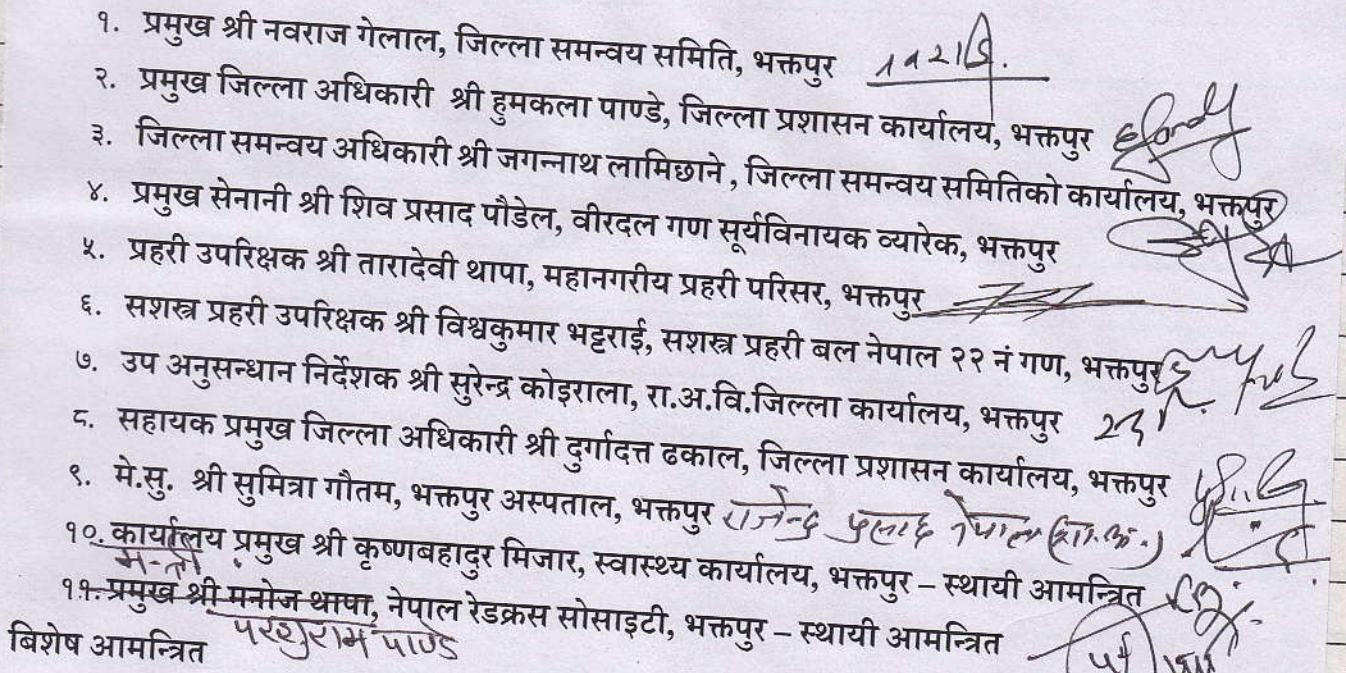 १. प्रमुख श्री नवराज गेलाल, जिल्ला समन्वय समिति, भक्तपुर
२. प्रमुख जिल्ला अधिकारी श्री हुमकला पाण्डे, जिल्ला प्रशासन कार्यालय, भक्तपुर
३. जिल्ला समन्वय अधिकारी श्री जगन्नाथ लामिछाने, जिल्ला समन्वय समितिको कार्यालय, भक्तपुर
४. प्रमुख सेनानी श्री शिव प्रसाद पौडेल, वीरदल गण सूर्यविनायक व्यारेक, भक्तपुर
५. प्रहरी उपरिक्षक श्री तारादेवी थापा, महानगरीय प्रहरी परिसर, भक्तपुर
६. सशस्त्र प्रहरी उपरिक्षक श्री विश्वकुमार भट्टराई, सशस्त्र प्रहरी बल नेपाल २२ नं गण, भक्तपुर
७. उप अनुसन्धान निर्देशक श्री सुरेन्द्र कोइराला, रा.अ.वि.जिल्ला कार्यालय, भक्तपुर
८. सहायक प्रमुख जिल्ला अधिकारी श्री दुर्गादत्त ढकाल, जिल्ला प्रशासन कार्यालय, भक्तपुर
९. मे.सु. श्री सुमित्रा गौतम, भक्तपुर अस्पताल, भक्तपुर राजेन्द्र प्रसाद नेपाल
१०. कार्यालय प्रमुख श्री कृष्णबहादुर मिजार, स्वास्थ्य कार्यालय, भक्तपुर – स्थायी आमन्त्रित
मन्त्री
११. प्रमुख श्री मनोज थापा, नेपाल रेडक्रस सोसाइटी, भक्तपुर – स्थायी आमन्त्रित
परशुराम पाण्डे
बिशेष आमन्त्रित